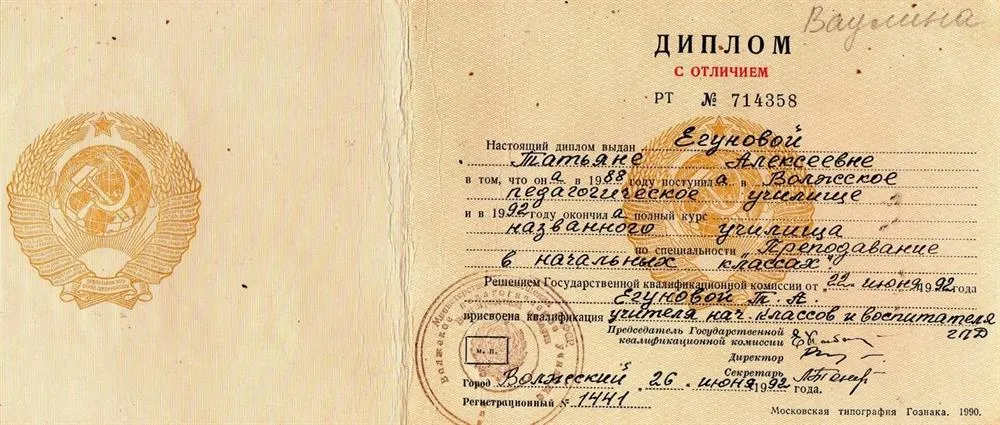 Ваулина
ДИПЛОМ
С ОТЛИЧИЕМ
РТ № 714358
Настоящий диплом выдан Егуновой
Татьяне Алексеевне
в том, что она в 1988 году поступила в Волжское
педагогическое училище
и в 1992 году окончила полный курс
названного училища
по специальности „Преподавание
в начальных классах"
Решением Государственной квалификационной комиссии от 22 июня 1992 года
Егуновой Т. А.
присвоена квалификация учителя нач. классов и воспитателя
ГПД
Председатель Государственной
квалификационной комиссии
Директор
Секретарь
М. П.
Город Волжский 26 июня 1992 года.
Регистрационный № 1441
Московская типография Гознака. 1990.